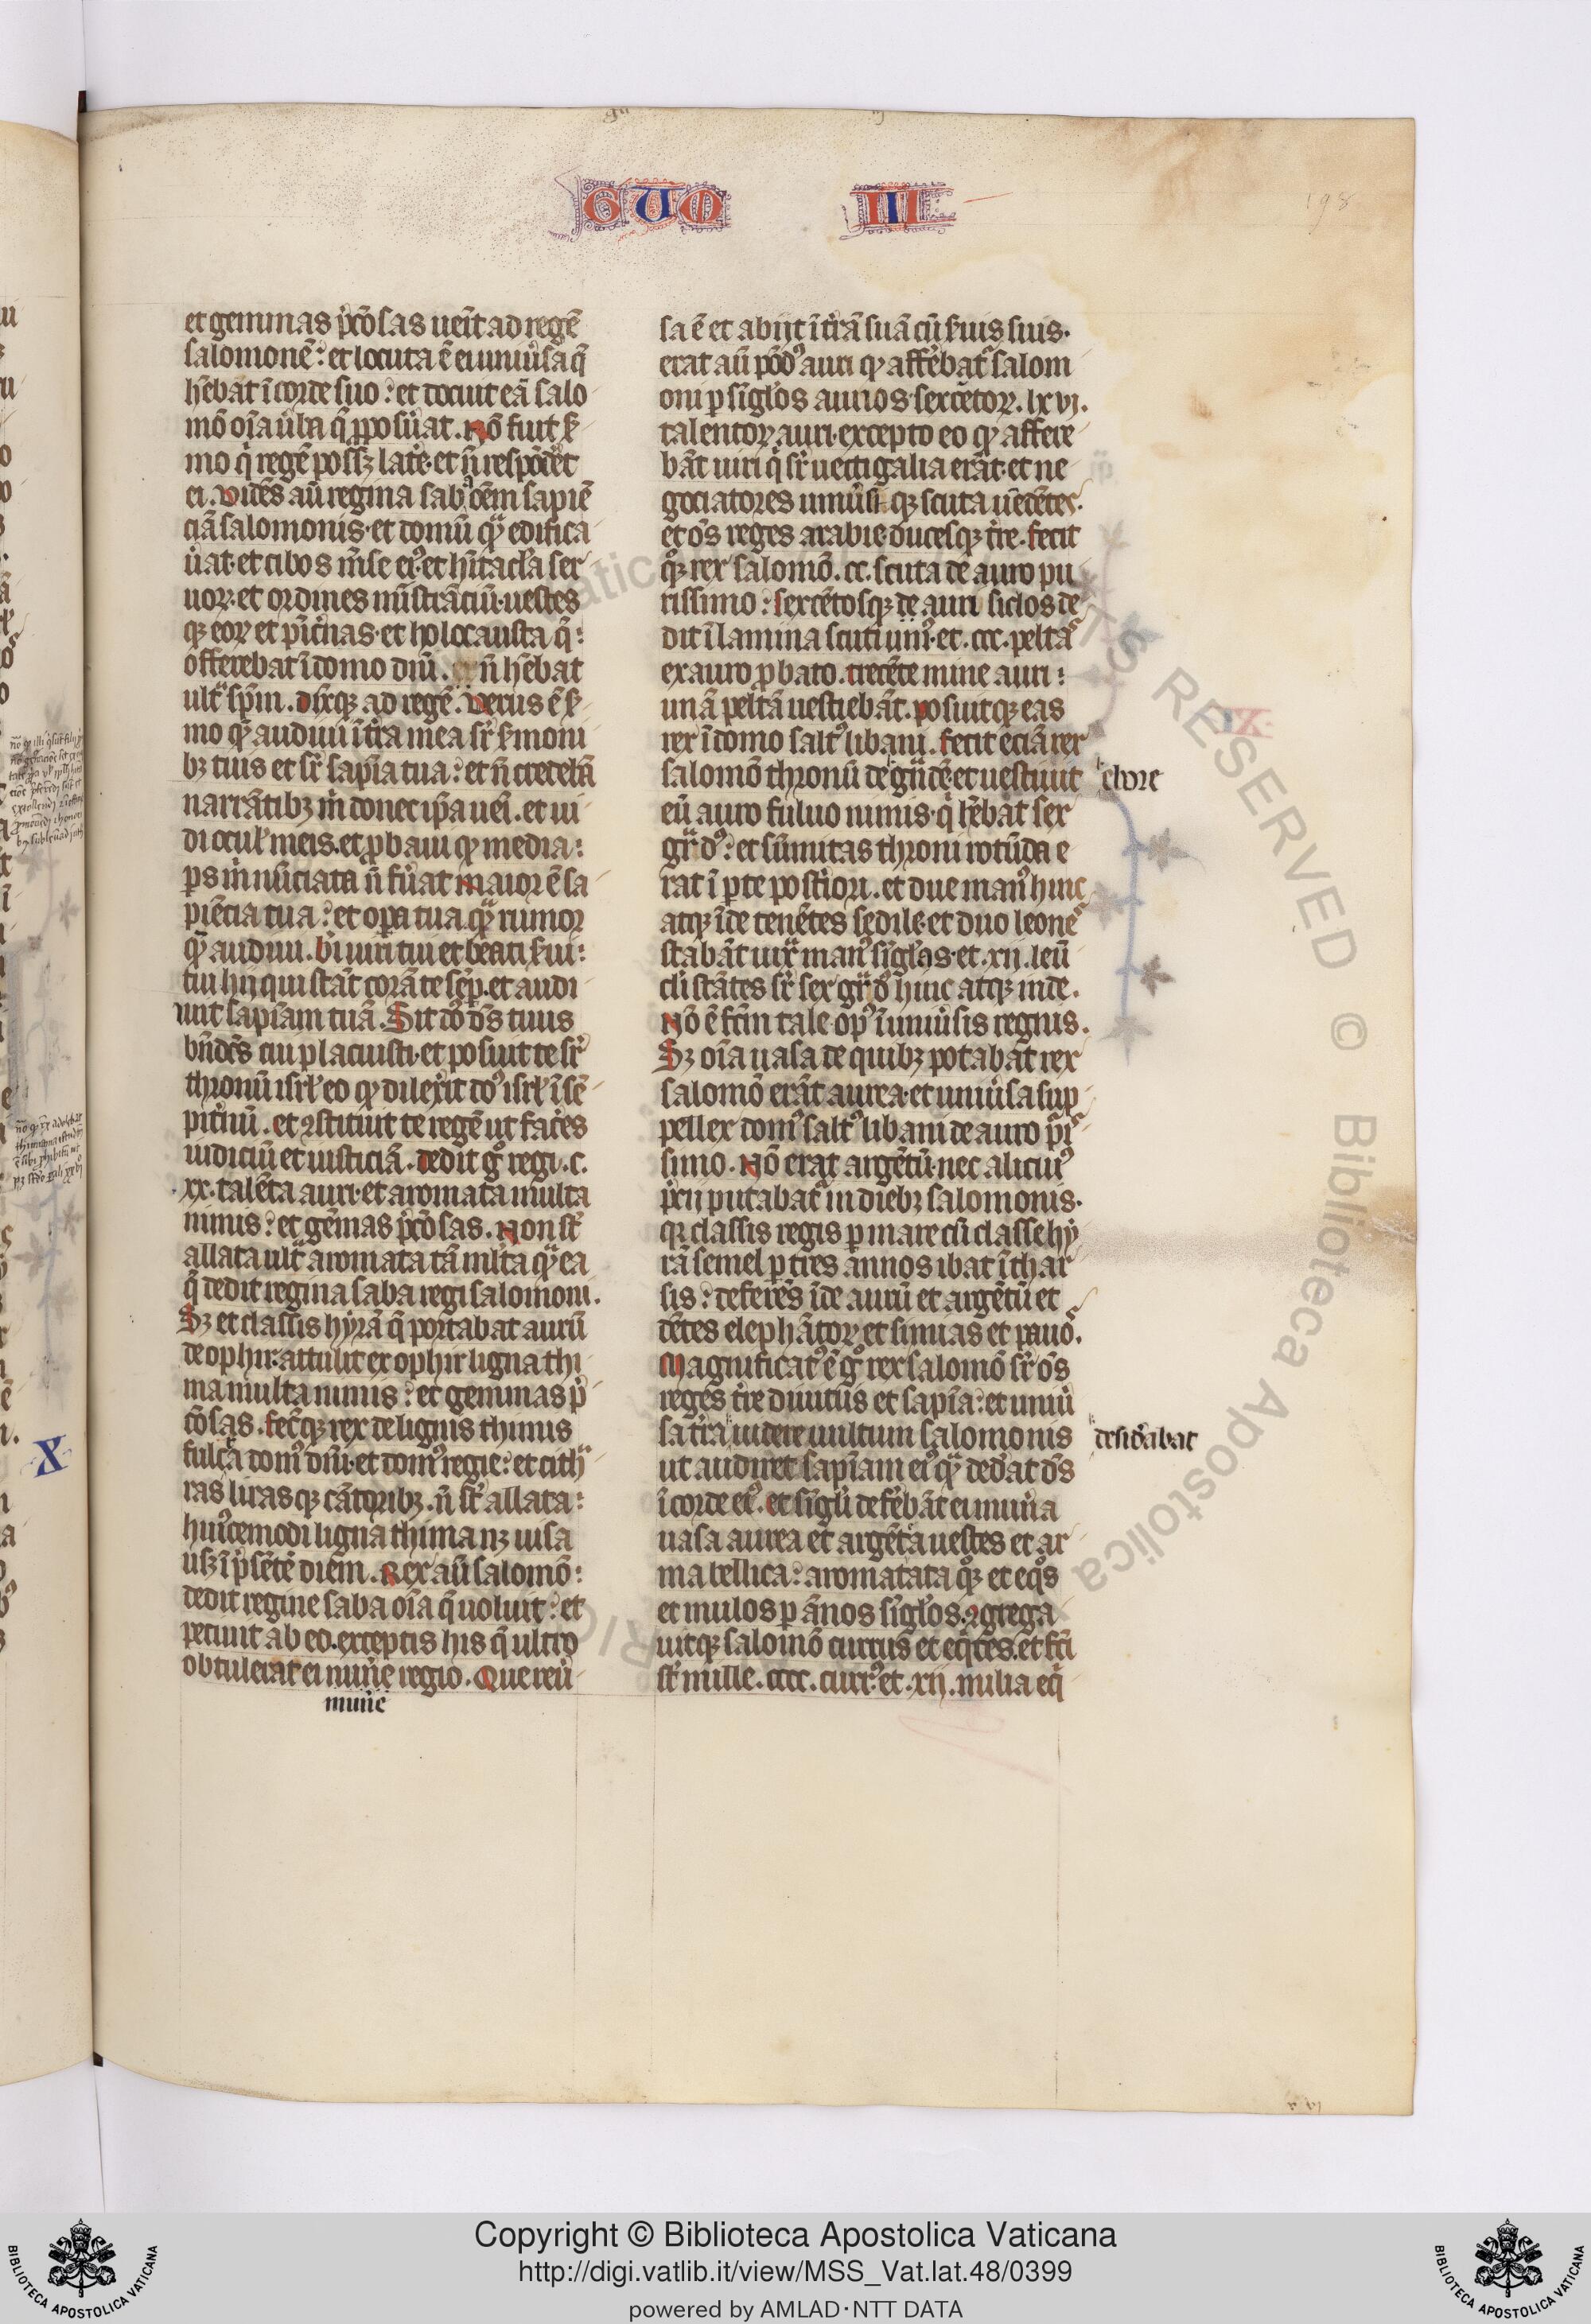 GUO III
198
et gemmas p̃cõsas uenit ad regẽ
salomonẽ: et locuta ẽ ei uniũsa q̃
hẽbat ĩ corde suo: et docuit eã salo
mõ oĩa ũba q̃ ꝓposũat. Nõ fuit ẜ
mo q̃ regẽ possꝫ latẽ. et ñ respõdẽt
ei. Videns aũ regina sabͣ oẽm sapiẽ
ciã salomonis. et domũ qͣ edifica
ũat. et cibos mẽse eiꝰ. et hĩtacl̃a ser
uoꝝ. et ordines mĩstrãciũ. uestes
qꝫ eoꝝ et pĩcnas. et holocausta q̃:
offerebat ĩ domo dñi. ñ hẽbat
ultͣ sp̃m. dix̃qꝫ ad regẽ. Verus ẽ ẜ
mo quẽ audiui ĩ tr̃a mea sr̃ ẜmoni
bꝫ tuis et sr̃ sapĩa tua: et ñ credebã
narrãtibꝫ m̃ donec ip̃a uẽi. et ui
di ocul̃ meis. et ꝓbaui qꝫ media:
ps m̃ nũciata ñ fũat maior ẽ sa
piẽcia tua: et oꝑa tua. qͣ rumor
quẽ audiui. bĩ uiri tui et beati ẜui:
tui hij qui stãt corã te sẽꝑ. et audi
unt sapĩam tuã. Sit dõ ds̃ tuus
bñdc̃s cui placuisti. et posuit te sr̃
thronũ isrl̃ eo qꝫ dilexit dõꝰ isrl̃ ĩ sẽ
pitnũ. et ꝯstituit te regẽ ut faẽs
iudiciũ et iusticiã. dedit gͦ regi. c.
xx. talẽta auri. et aromata multa
nimis: et gẽmas p̃cõsas. Non st̃
allata ultͣ aromata tã ml̃ta quã ea
q̃ dedit regina saba regi salomoni.
Sꝫ et classis hyrã q̃ portabat aurũ
de ophir. attulit ex ophir ligna thi
ma multa nimis: et gemmas p̃
cõsas. fec̃qꝫ rex de lignis thimis
fulcͣ domꝰ dñi. et domꝰ regie: et cithͣ
ras lirasqꝫ cãtoribꝫ. ñ st̃ allata:
huĩcemodi ligna thima nꝫ uisa
usꝫ ĩ p̃sẽtẽ diem. Rex aũ salomõ:
dedit regine saba oĩa q̃ uoluit: et
petiuit ab eo. exceptis his q̃ ultro
obtulerat ei munẽ regio. Que reũ
munẽ
sa ẽ et abijt ĩ tr̃ã suã cũ ẜuis suis.
erat aũ põdꝰ auri qꝫ affẽbatͬ salom
oni ꝑ sĩgl̃os annos. sexcẽtoꝝ. lxvj.
talentoꝝ auri. excepto eo qꝫ affere
bãt uiri q̃ sr̃ uectigalia erãt. et ne
gociatores uniũsi. qꝫ scuta uẽdẽtes.
et oẽs reges arabie. ducesqꝫ tr̃e. fecit
qͦꝫ rex salomõ. cc. scuta de auro pu
rissimo: sexcẽtosqꝫ de auri siclos de
dit ĩ lamina scuti uniꝰ. et. ccc. peltas
ex auro ꝓbato. trecẽte mine auri:
unã peltã uestiebãt. posuitqꝫ eas
rex ĩ domo saltꝰ libani. fecit eciã rex
salomõ thronũ de gͣndẽ et uestiuit
ebore
eũ auro fuluo nimis. q̃ hẽbat sex
gͣdꝰ: et sũmitas throni rotũda e
rat ĩ ꝑte postiori. et due manꝰ hinc
atqꝫ ĩde tenẽtes sedile. et duo leones
stabãt iuxͣ manꝰ sĩgl̃as. et. xij. leũ
cl̃i stãtes sr̃ sex gͣdꝰ hinc atqꝫ inde.
Nõ ẽ fc̃m tale opꝰ ĩ uniũsis regnis.
Sꝫ oĩa uasa de quibꝫ potabat rex
salomõ erãt aurea. et uniũsa sup
pellex domꝰ saltꝰ libani de auro pͥs
simo. Nõ erat argẽtũ. nec alicuiꝰ
p̃cij putabatͬ in diebꝫ salomonis.
qꝫ classis regis ꝑ mare cũ classe hy
rã semel ꝑ tres annos ibat ĩ thar
sis: deferẽs ĩde aurũ et argẽtũ et
dẽtes elephãtoꝝ et simias et pauõs.
Magnificatꝰ ẽ gͦ rex salomõ sr̃ oẽs
reges tr̃e diuitiis et sapĩa: et uniũ
sa tr̃a uidere uultum salomonis
desid̃abat
ut audiret sapĩam eiꝰ quã ded̃at ds̃
ĩ corde eiꝰ. et sĩgl̃i defẽbãt ei munã
uasa aurea et argẽta uestes et ar
ma bellica: aromatata qͦꝫ et eqͦs
et mulos ꝑ ãnos sĩgl̃os. ꝯgrega
uitqꝫ salomõ currus et eq̃tes. et fc̃i
st̃ mille. cccc. currꝰ. et. xij. milia eq̃
X
RIGHTS RESERVED © Biblioteca Apostolica
Copyright © Biblioteca Apostolica Vaticana
http://digi.vatlib.it/view/MSS_Vat.lat.48/0399
powered by AMLAD·NTT DATA
BIBLIOTECA APOSTOLICA VATICANA
BIBLIOTECA APOSTOLICA VATICANA